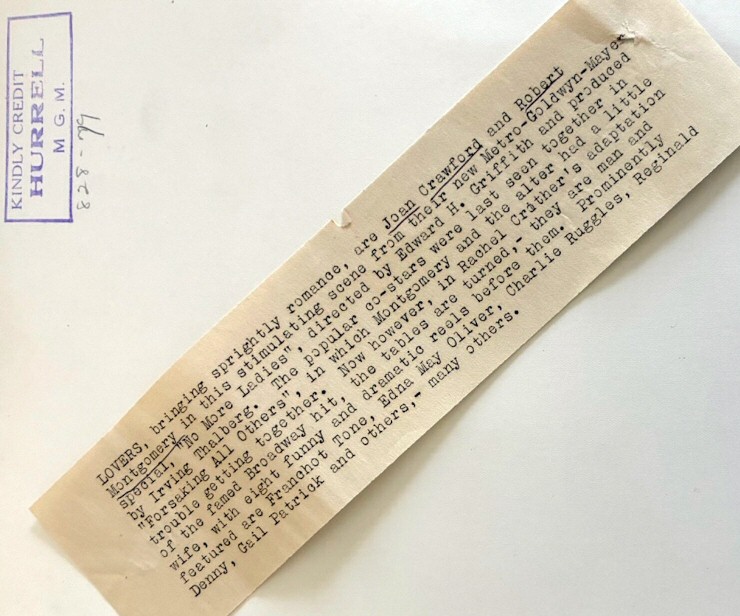 KINDLY CREDIT
HURRELL
M G. M.
828-79
LOVERS, bringing sprightly romance, are Joan Crawford and Robert
Montgomery in this stimulating scene from their new Metro-Goldwyn-Mayer
special, "No More Ladies", directed by Edward H. Griffith and produced
by Irving Thalberg. The popular co-stars were last seen together in
"Forsaking All Others", in which Montgomery and the alter had a little
trouble getting together. Now however, in Rachel Crother's adaptation
of the famed Broadway hit, the tables are turned,- they are man and
wife, with eight funny and dramatic reels before them. Prominently
featured are Franchot Tone, Edna May Oliver, Charlie Ruggles, Reginald
Denny, Gail Patrick and others,- many others.